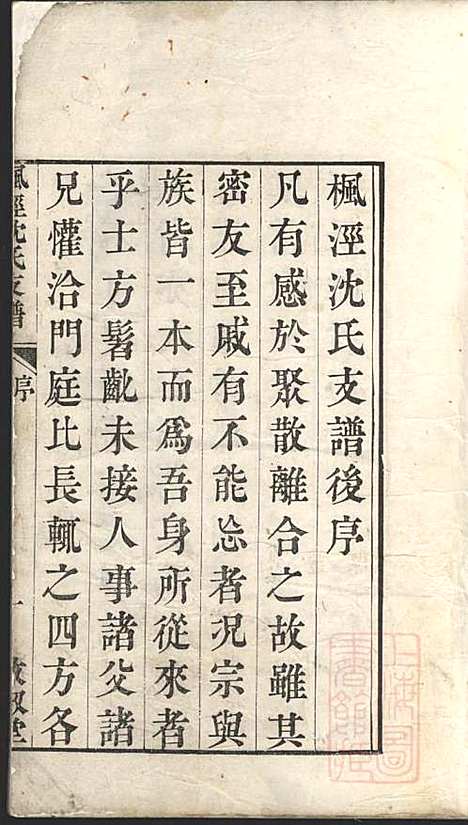 楓涇沈氏支譜後序
凡有感於聚散離合之故雖其
密友至戚有不能忘者況宗與
族皆一本而為吾身所從來者
乎士方髫齔未接人事諸父諸
兄懽洽門庭比長輒之四方各
楓涇沈氏支譜
序
一
敘堂
上海圖
書館藏